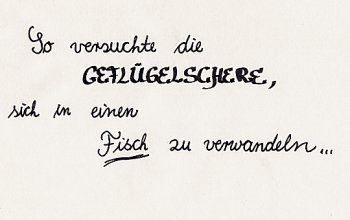 So versuchte die
GEFLÜGELSCHERE,
sich in einen
Fisch zu verwandeln...